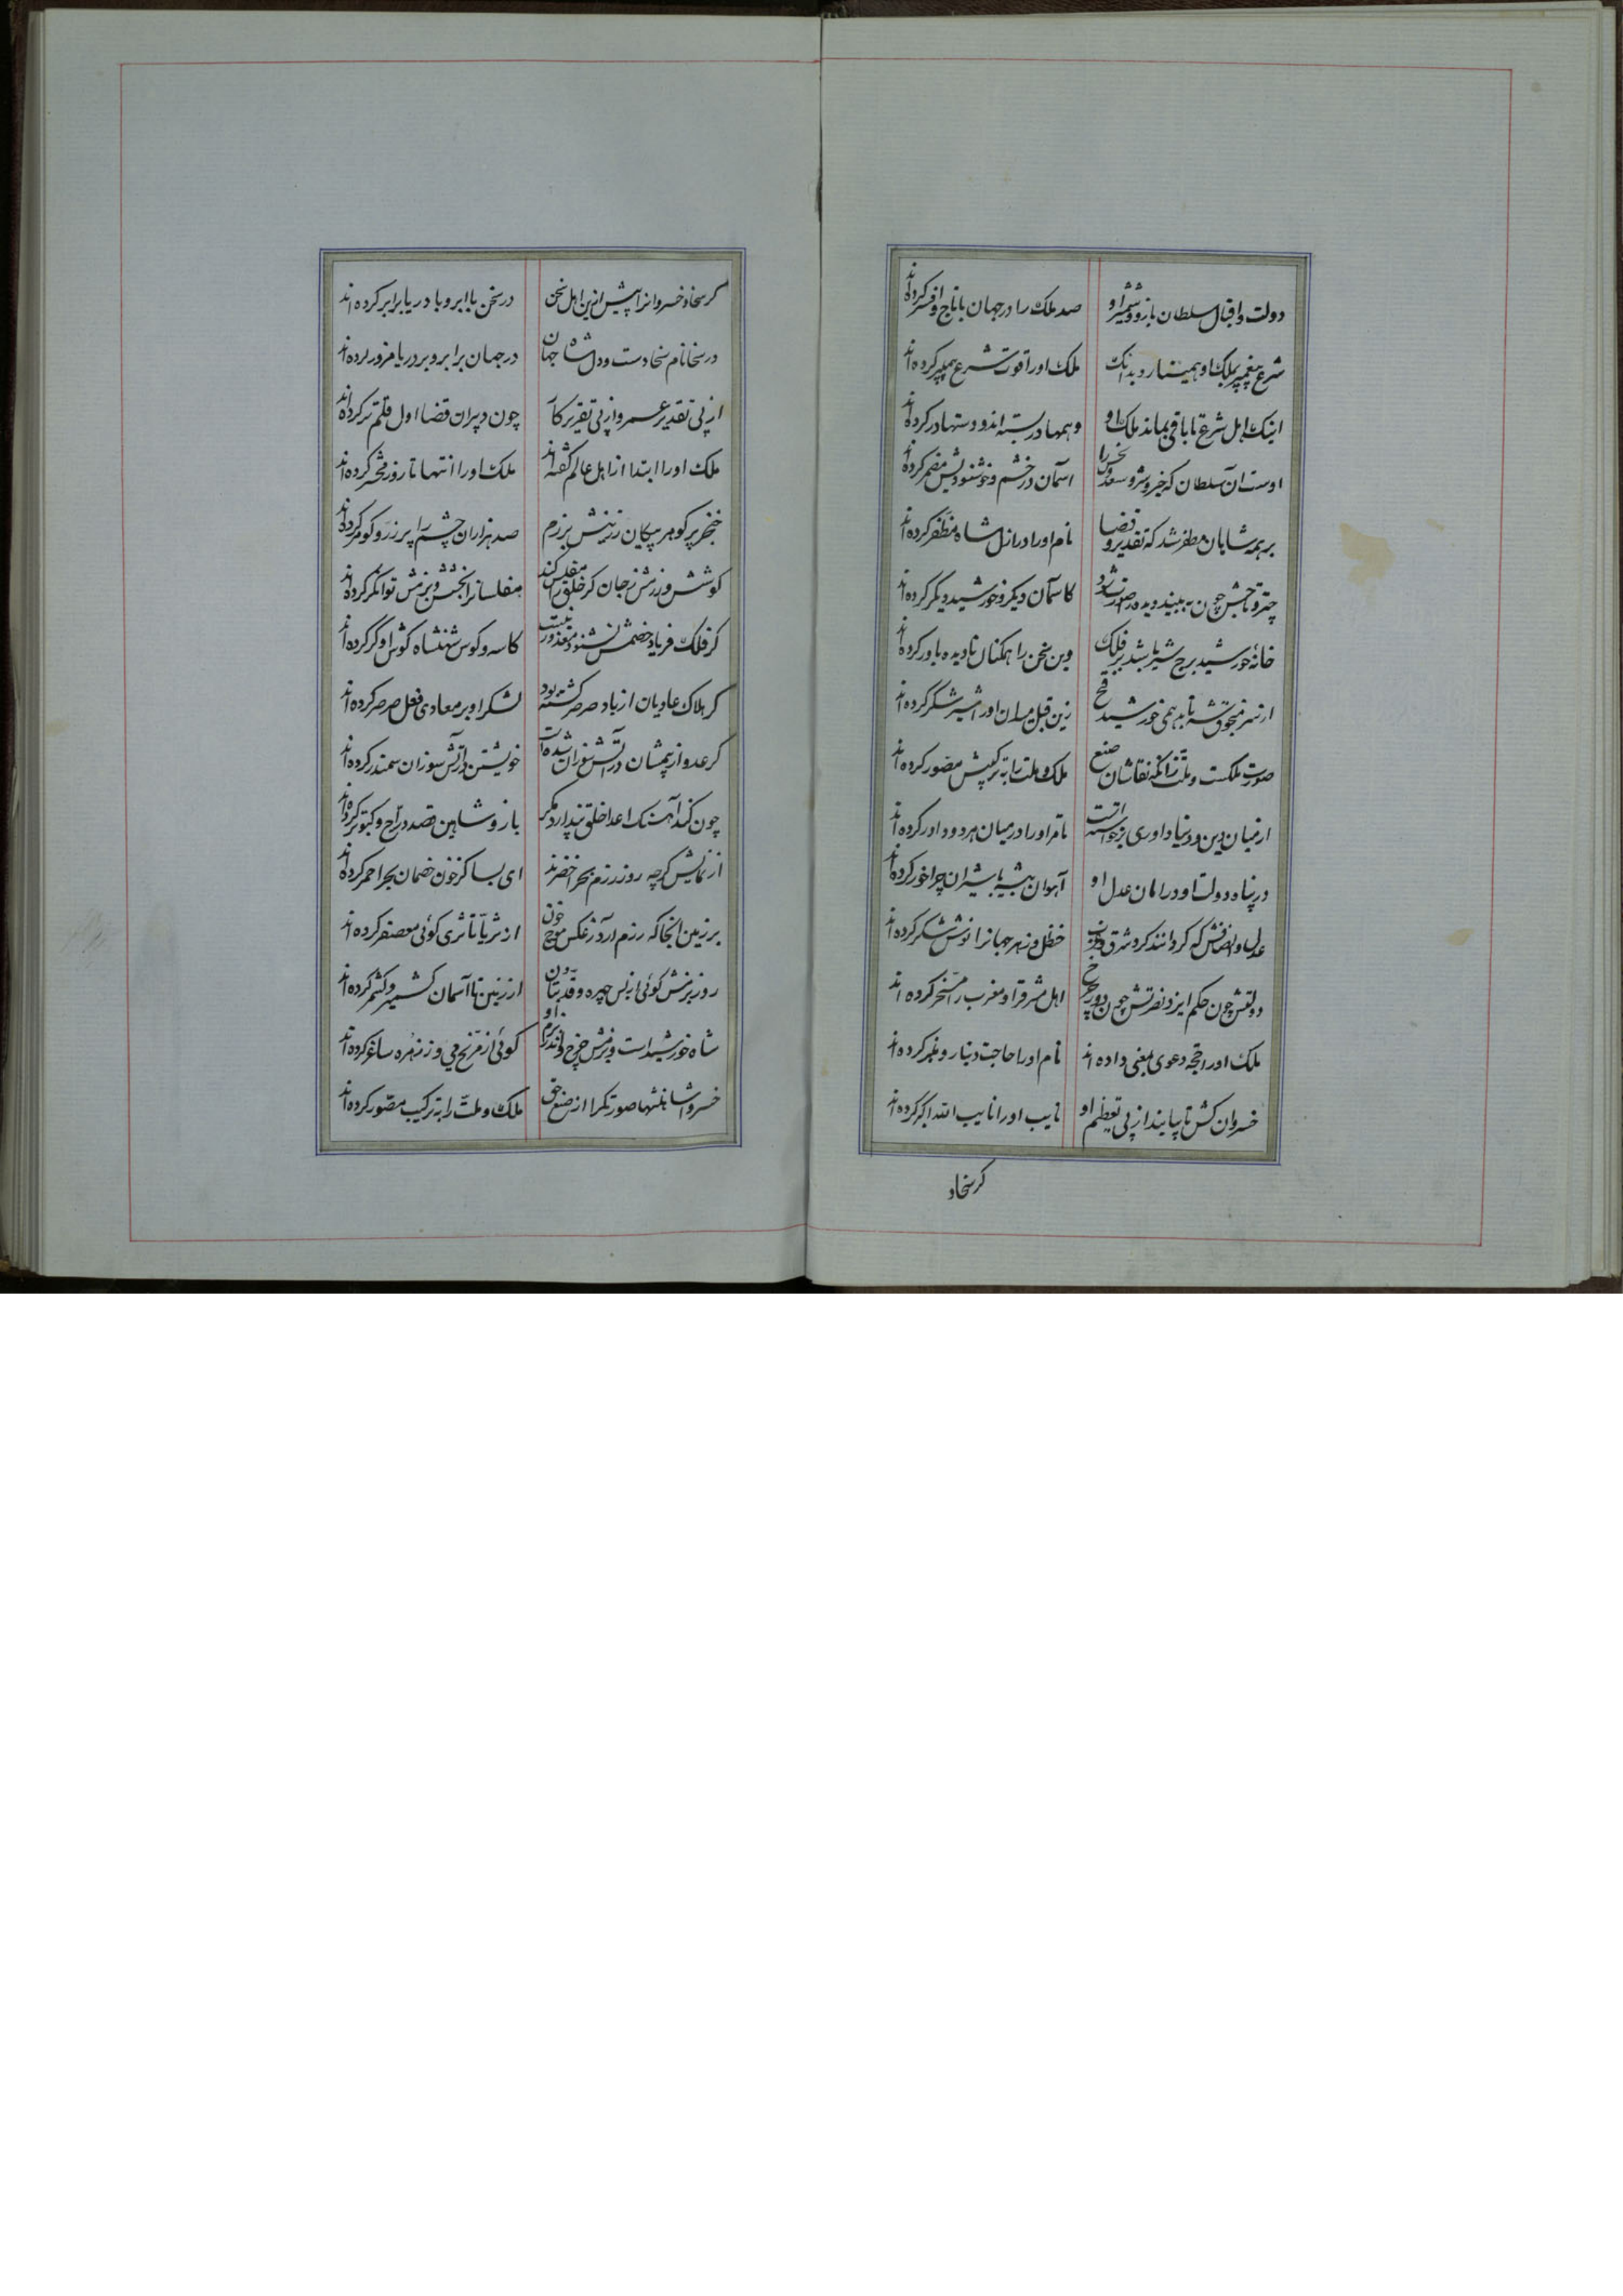 دولت و اقبال سلطان بازو و شمشیر او صد ملک را در جهان با تاج و افسر کرده‌اند
شرع پیغمبر بملک او همی نازد بدانک ملک او را قوت شرع پیمبر کرده‌اند
اینک اهل شرع تا باقی بماند ملک او و همها در بسته‌اند و دستها در کرده‌اند
اوست آن سلطان که خیر و شر و سعد و نحس را آسمان در خشم و خوشنودیش مضمر کرده‌اند
بر همه شاهان مظفر شد که تقدیر و قضا نام او را در ازل شاه مظفر کرده‌اند
چتر و تاجش چون ببیند دیده در صورت شود کاسمان دیگر و خورشید دیگر کرده‌اند
خانه خورشید برج شیر باشد بر فلک وین سخن را همکنان نادیده باور کرده‌اند
از سر منجوق شه تابد همی خورشید فتح زین قبل میدان او را شیر شکر کرده‌اند
صورت ملکست و ملت زانکه نقاشان صنع ملک و ملت را به ترکیبش مصور کرده‌اند
از میان دین و دنیا داوری برخواسته است تا مر او را در میان هر دو داور کرده‌اند
در پناه دولت او در امان عدل او آهوان بیشه با شیران چراخور کرده‌اند
عدل و انصافش که کردانند کرد شرق و غرب حنظل و زهر جهانرا نوش و شکر کرده‌اند
دولتش چون حکم ایزد نصرتش چون دور چرخ اهل مشرق را و مغرب را مسخر کرده‌اند
ملک او را حجه دعوی بمعنی داده‌اند نام او را حاجت دینار و منبر کرده‌اند
خسروان کش تا بپایند از پی تعظیم او نایب او را نایب الله اکبر کرده‌اند
کر سخاو
کر سخاو خسروانرا پیش ازین اهل سخن در سخن با ابر و با دریا برابر کرده‌اند
در سخا نام سخا دست و دل شاه جهان در جهان بر ابر و بر دریا مزور کرده‌اند
از پی تقدیر عمر و از پی تقریر کار چون دبیران قضا اول قلم تر کرده‌اند
ملک او را ابتدا از اهل عالم گفته‌اند ملک او را انتها تا روز محشر کرده‌اند
خنجر پر کوهر و پیکان زرینش برزم صد هزاران چشم را پر زر و کوهر کرده‌اند
کوشش و رزمش ز جان کر خلق را مفلس کند مفلسانرا بخشش و بزمش توانکر کرده‌اند
کر فلک فریاد خصمش نشنود معذور نیست کاسه و کوس شهنشاه کوش او کر کرده‌اند
کر هلاک عادیان از باد صرصر کشته بود لشکر او بر معادی فعل صرصر کرده‌اند
کر عدو از بیمشان در آتش سوزان شده است خویشتن در آتش سوزان سمندر کرده‌اند
چون کند آهنک اعدا خلق پندارد مکر باز و شاهین قصد دراج و کبوتر کرده‌اند
از نمایش کرچه روز رزم بحر اخضرند ای بسا کز خون خصمان بحر احمر کرده‌اند
بر زمین آنجا که رزم آرد ز عکس موج خون از ثریا تا ثری کوئی معصفر کرده‌اند
روز بزمش کوئی از بس چهره و قد بتان از زمین تا آسمان کشمیر و کشمر کرده‌اند
شاه خورشید است و بزمش چرخ و اندر بزم او کوئی از مریخ می وز زهره ساغر کرده‌اند
خسروا شاهنشها صورتگرا از صنع حق ملک و ملت را به ترکیب مصور کرده‌اند